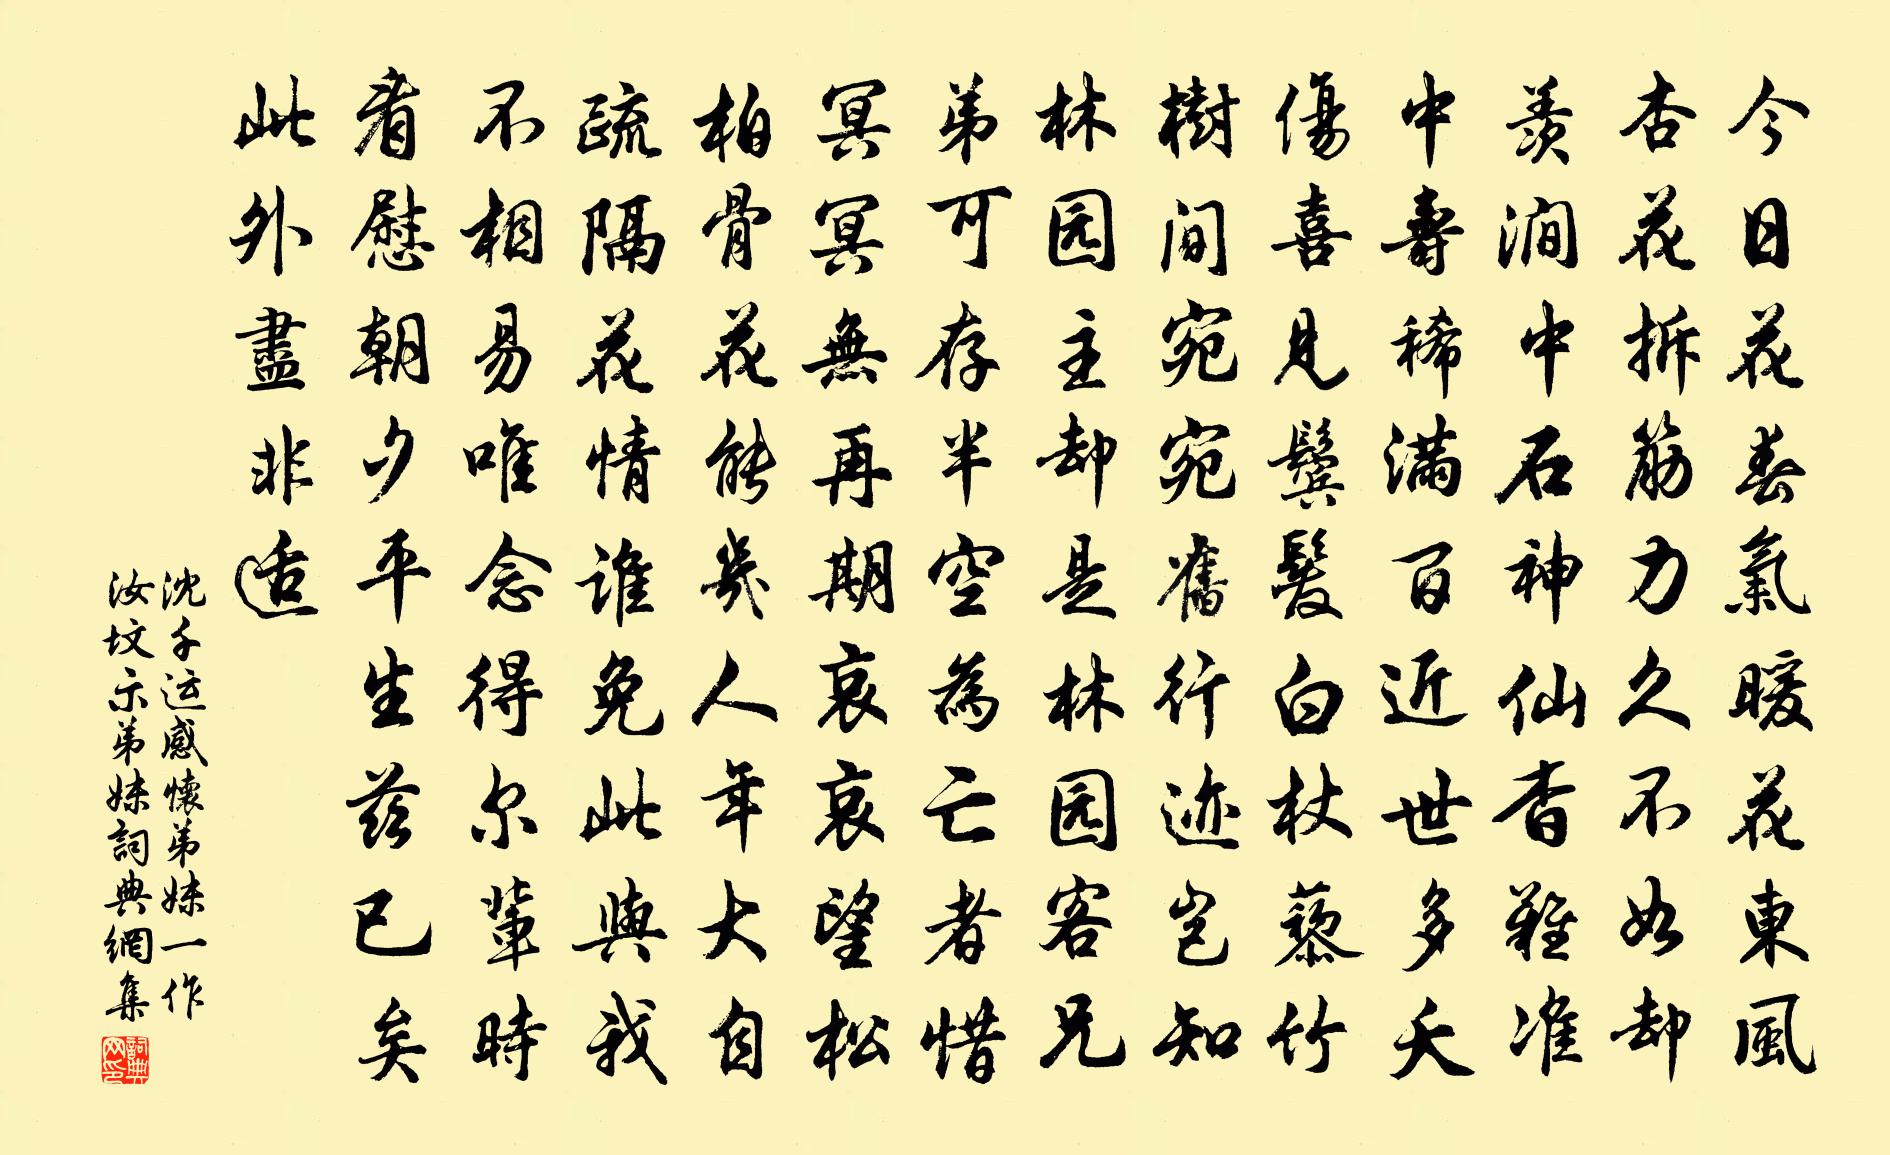 今日花春氣暖花東風
杏花拆筋力久不如却
羨澗中石神仙杳難准
中壽稀滿百近世多夭
傷喜見鬢髮白杖藜竹
樹间宛宛舊行迹豈知
林园主却是林园客兄
弟可存半空為亡者惜
冥冥無再期哀哀望松
柏骨花能幾人年大自
疏隔花情谁免此與我
不相易唯念得尔輩時
看慰朝夕平生茲已矣
此外盡非适
沈千运感懷弟妹一作
汝坟示弟妹詞典網集